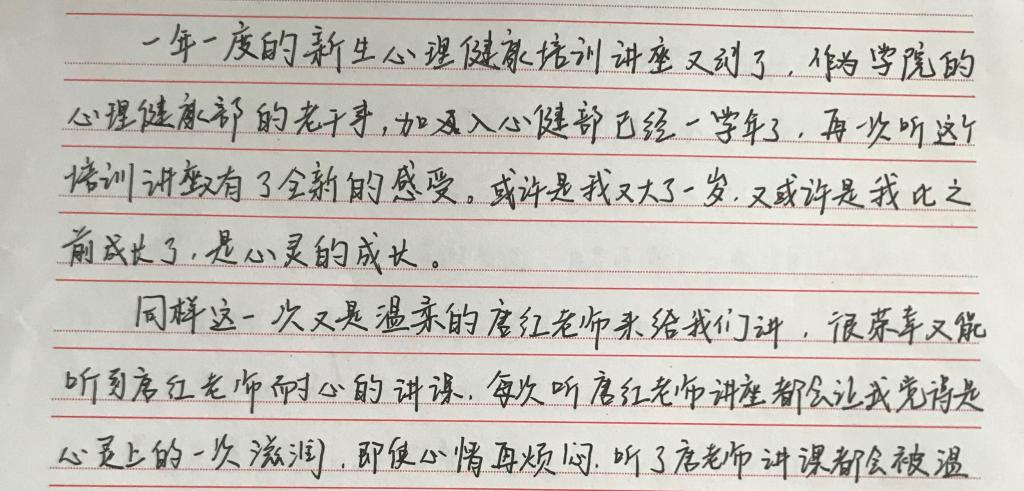 一年一度的新生心理健康培训讲座又到了，作为学院的
心理健康部的老干事，加入心健部已经一学年了，再一次听这个
培训讲座又有了全新的感受。或许是我又大了一岁，又或许是我比之
前成长了，是心灵的成长。
同样这一次又是温柔的唐红老师来给我们讲，很荣幸又能
听到唐红老师耐心的讲课，每次听唐红老师讲座都会让我觉得是
心灵上的一次滋润，即使心情再烦闷，听了唐老师讲课都会被温